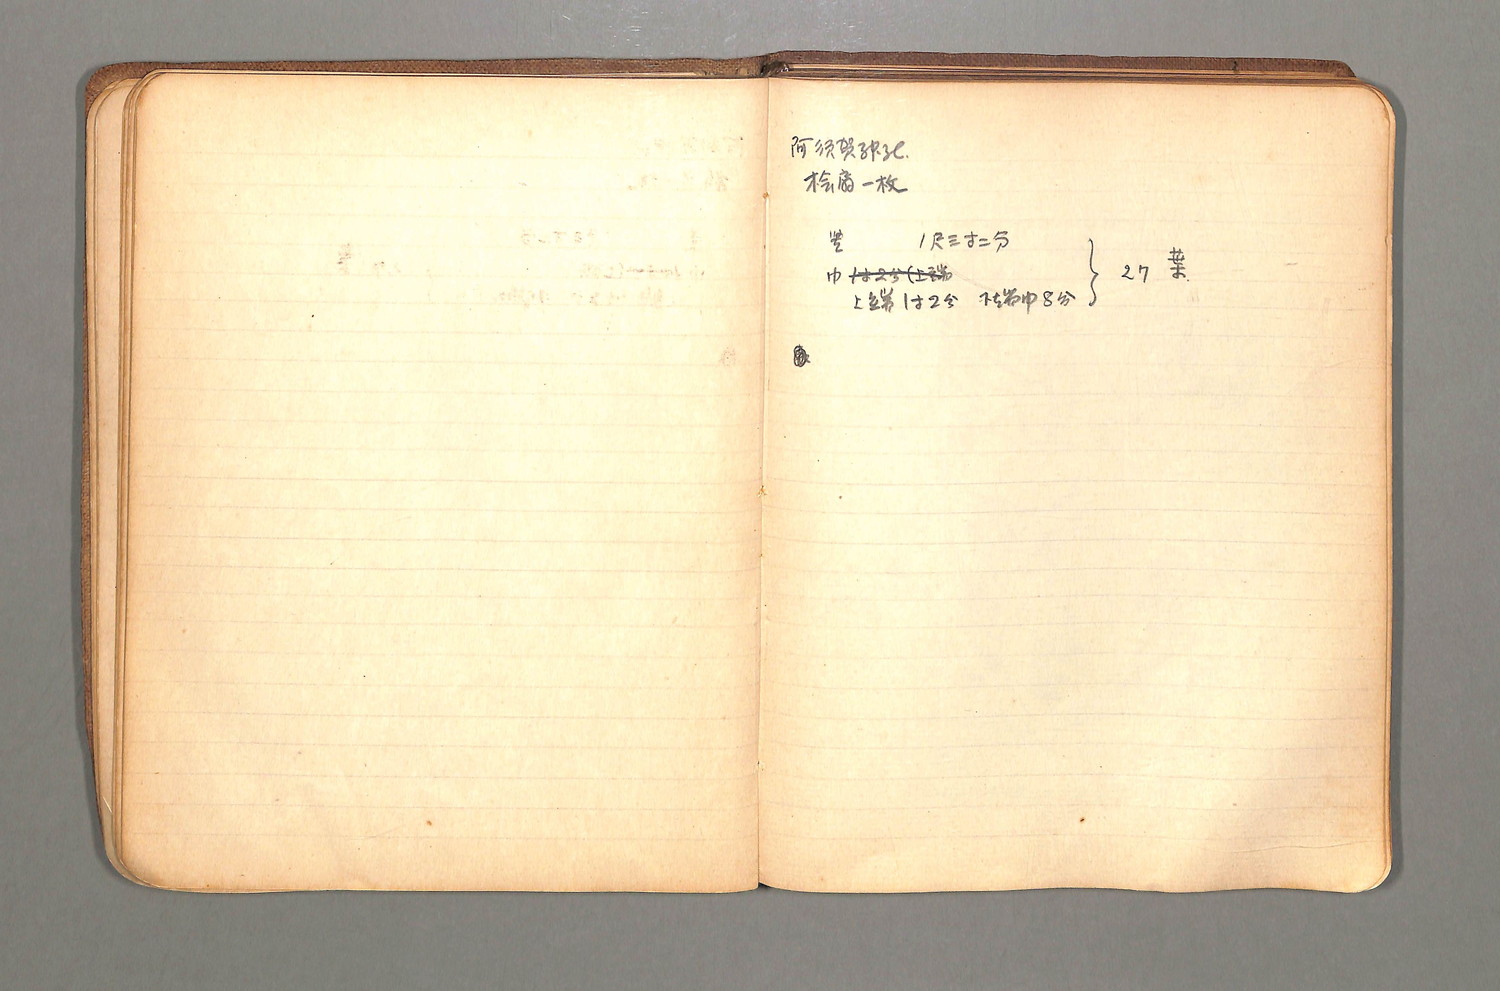 阿須賀神社.
桧扇一枚
竪 1尺三寸二分
巾 1寸2分(上端
上端1寸2分 下端巾8分 } 27 葉.